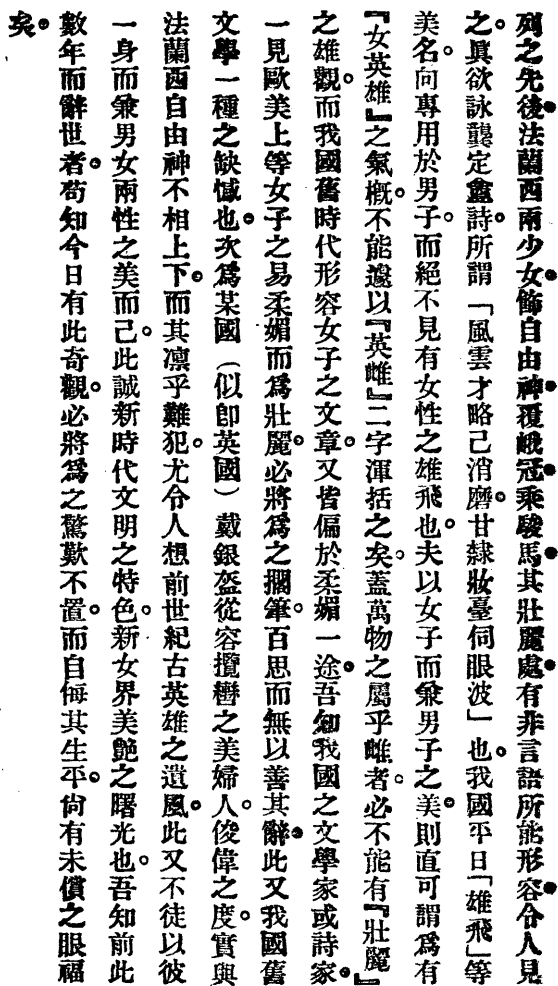 列之先後法蘭西兩少女飾自由神覆峨冠乘駿馬其壯麗處有非言語所能形容令人見
之。眞欲詠龔定盦詩所謂「風雲才略己消磨。甘隸妝臺伺眼波」也。我國平日「雄飛」等
美名。向專用於男子。而絕不見有女性之雄飛也。夫以女子而兼男子之美。則直可謂爲有
『女英雄』之氣槪。不能遽以『英雌』二字渾括之矣。蓋萬物之屬乎雌者。必不能有『壯麗』
之雄觀。而我國舊時代形容女子之文章。又皆偏於柔媚一途。吾知我國之文學家或詩家。
一見歐美上等女子之易柔媚而爲壯麗。必將爲之擱筆。百思而無以善其辭。此又我國舊
文學一種之缺憾也。次爲某國（似卽英國）戴銀盔從容攬轡之美婦人。俊偉之度。實與
法蘭西自由神不相上下。而其凛乎難犯。尤令人想前世紀古英雄之遺風。此又不徒以彼
一身而兼男女兩性之美而己。此誠新時代文明之特色。新女界美艷之曙光也。吾知前此
數年而辭世者。苟知今日有此奇觀。必將爲之驚歎不置。而自悔其生平。尙有未償之眼福
矣。